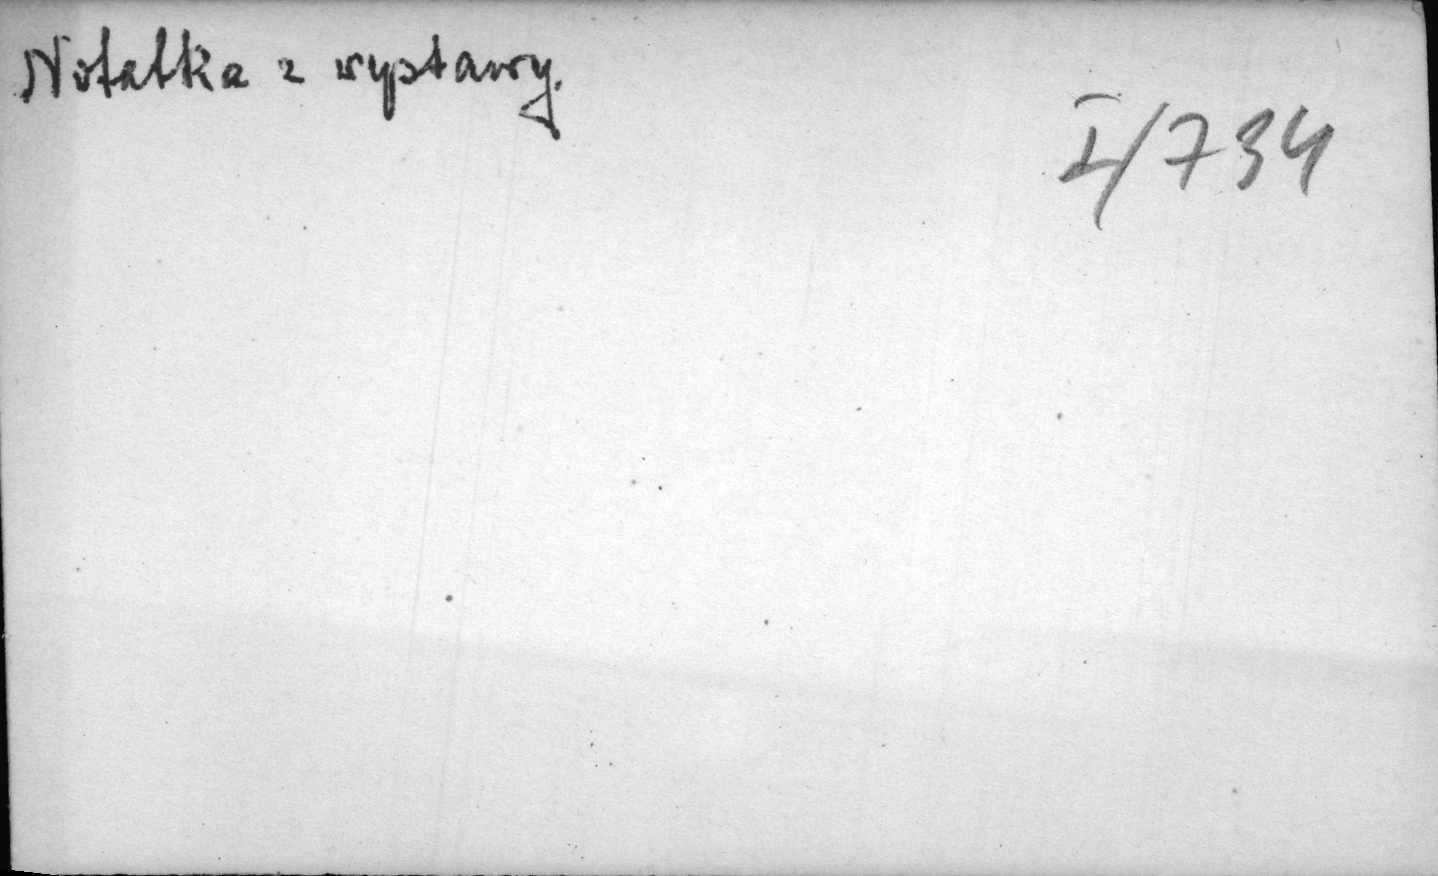 Notatka z wystawy.
I/734